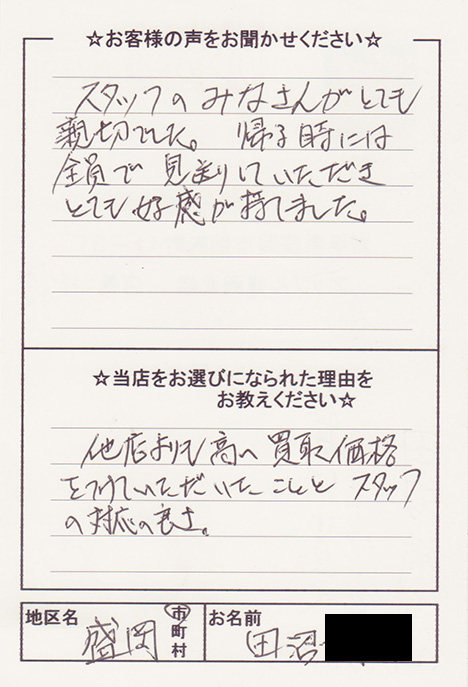 ☆お客様の声をお聞かせください☆
スタッフのみなさんがとても
親切でした。 帰る時には
全員で見送りしていただき
とても好感が持てました。
☆当店をお選びになられた理由を
お教えください☆
他店よりも高い買取価格
をつけていただいたことと スタッフ
の対応の良さ。
地区名 盛岡 市町村 お名前 田沼